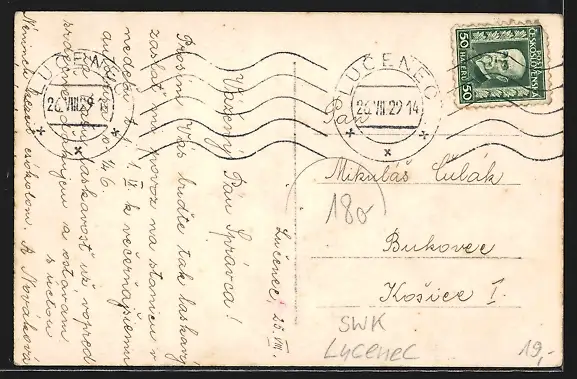 Lučenec, 25. VIII.
Vážený Pán Správca!
Prosím Vás buďte tak laskavý
zaslať mi povoz na stanicu v
nedeľu t. j. 1. IX. k večerňajšiemu
autobusu o 1/4 6.
Za Vašu laskavosť už vopred
srdečne ďakujem a ostávam
s úctou
A. Nováková
LUČENEC
26.VIII.29 1
LUČENEC
26.VIII.29 14
POŠTA
ČESKOSLOVENSKÁ
50 HALÉŘŮ 50
Pán
Mikuláš Čulák
180
Bukovec
Košice I.
SWK
Lucenec
19,-